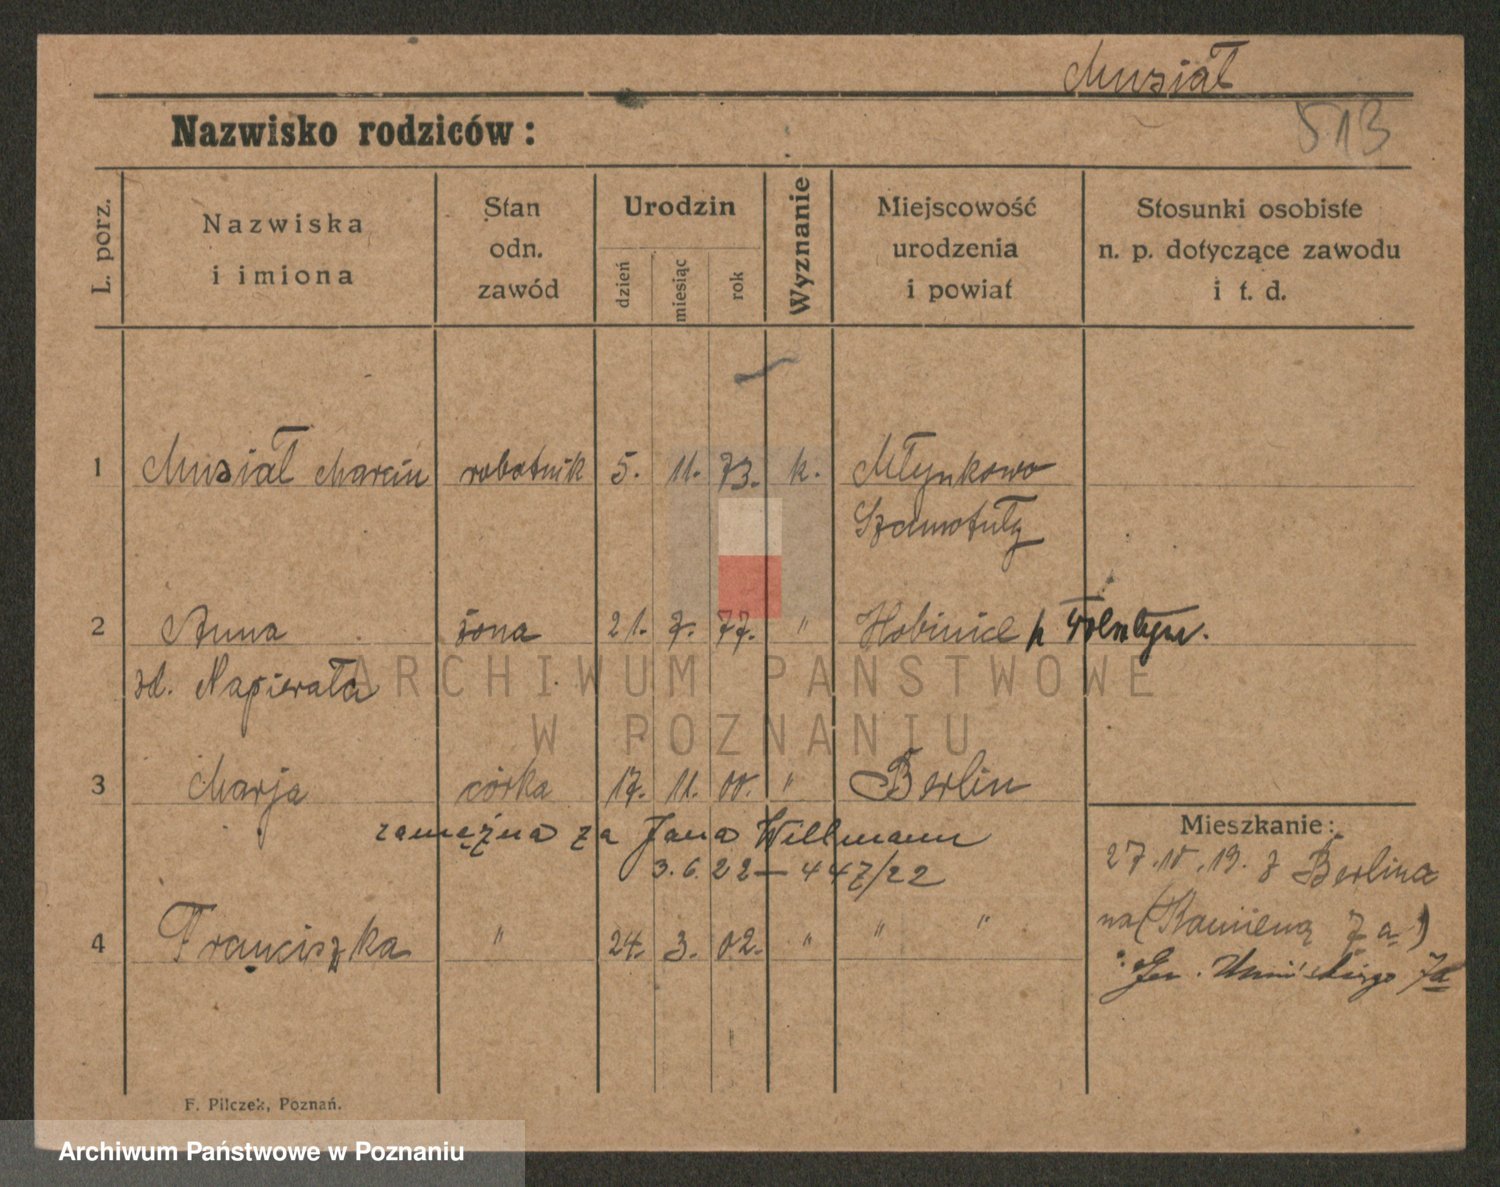 Musiał
513
Nazwisko rodziców:
L. porz.
Nazwiska
i imiona
Stan
odn.
zawód
Urodzin
dzień
miesiąc
rok
Wyznanie
Miejscowość
urodzenia
i powiat
Stosunki osobiste
n. p. dotyczące zawodu
i t. d.
1 Musiał Marcin robotnik 5. 11. 73. k. Młynkowo
Szamotuły
2 Anna żona 21. 7. 77. " p
zd. Napierała
ARCHIWUM PAŃSTWOWE
W POZNANIU
3 Marja córka 17. 11. 00. " Berlin
zamężna za Jana Willmann
3.6.22 — 447/22
Mieszkanie:
27.10.19. z Berlina
na (Kamieną 7a)
Gen. Umińskiego 7a
4 Franciszka " 24. 3. 02. " " "
F. Pilczek, Poznań.
Archiwum Państwowe w Poznaniu